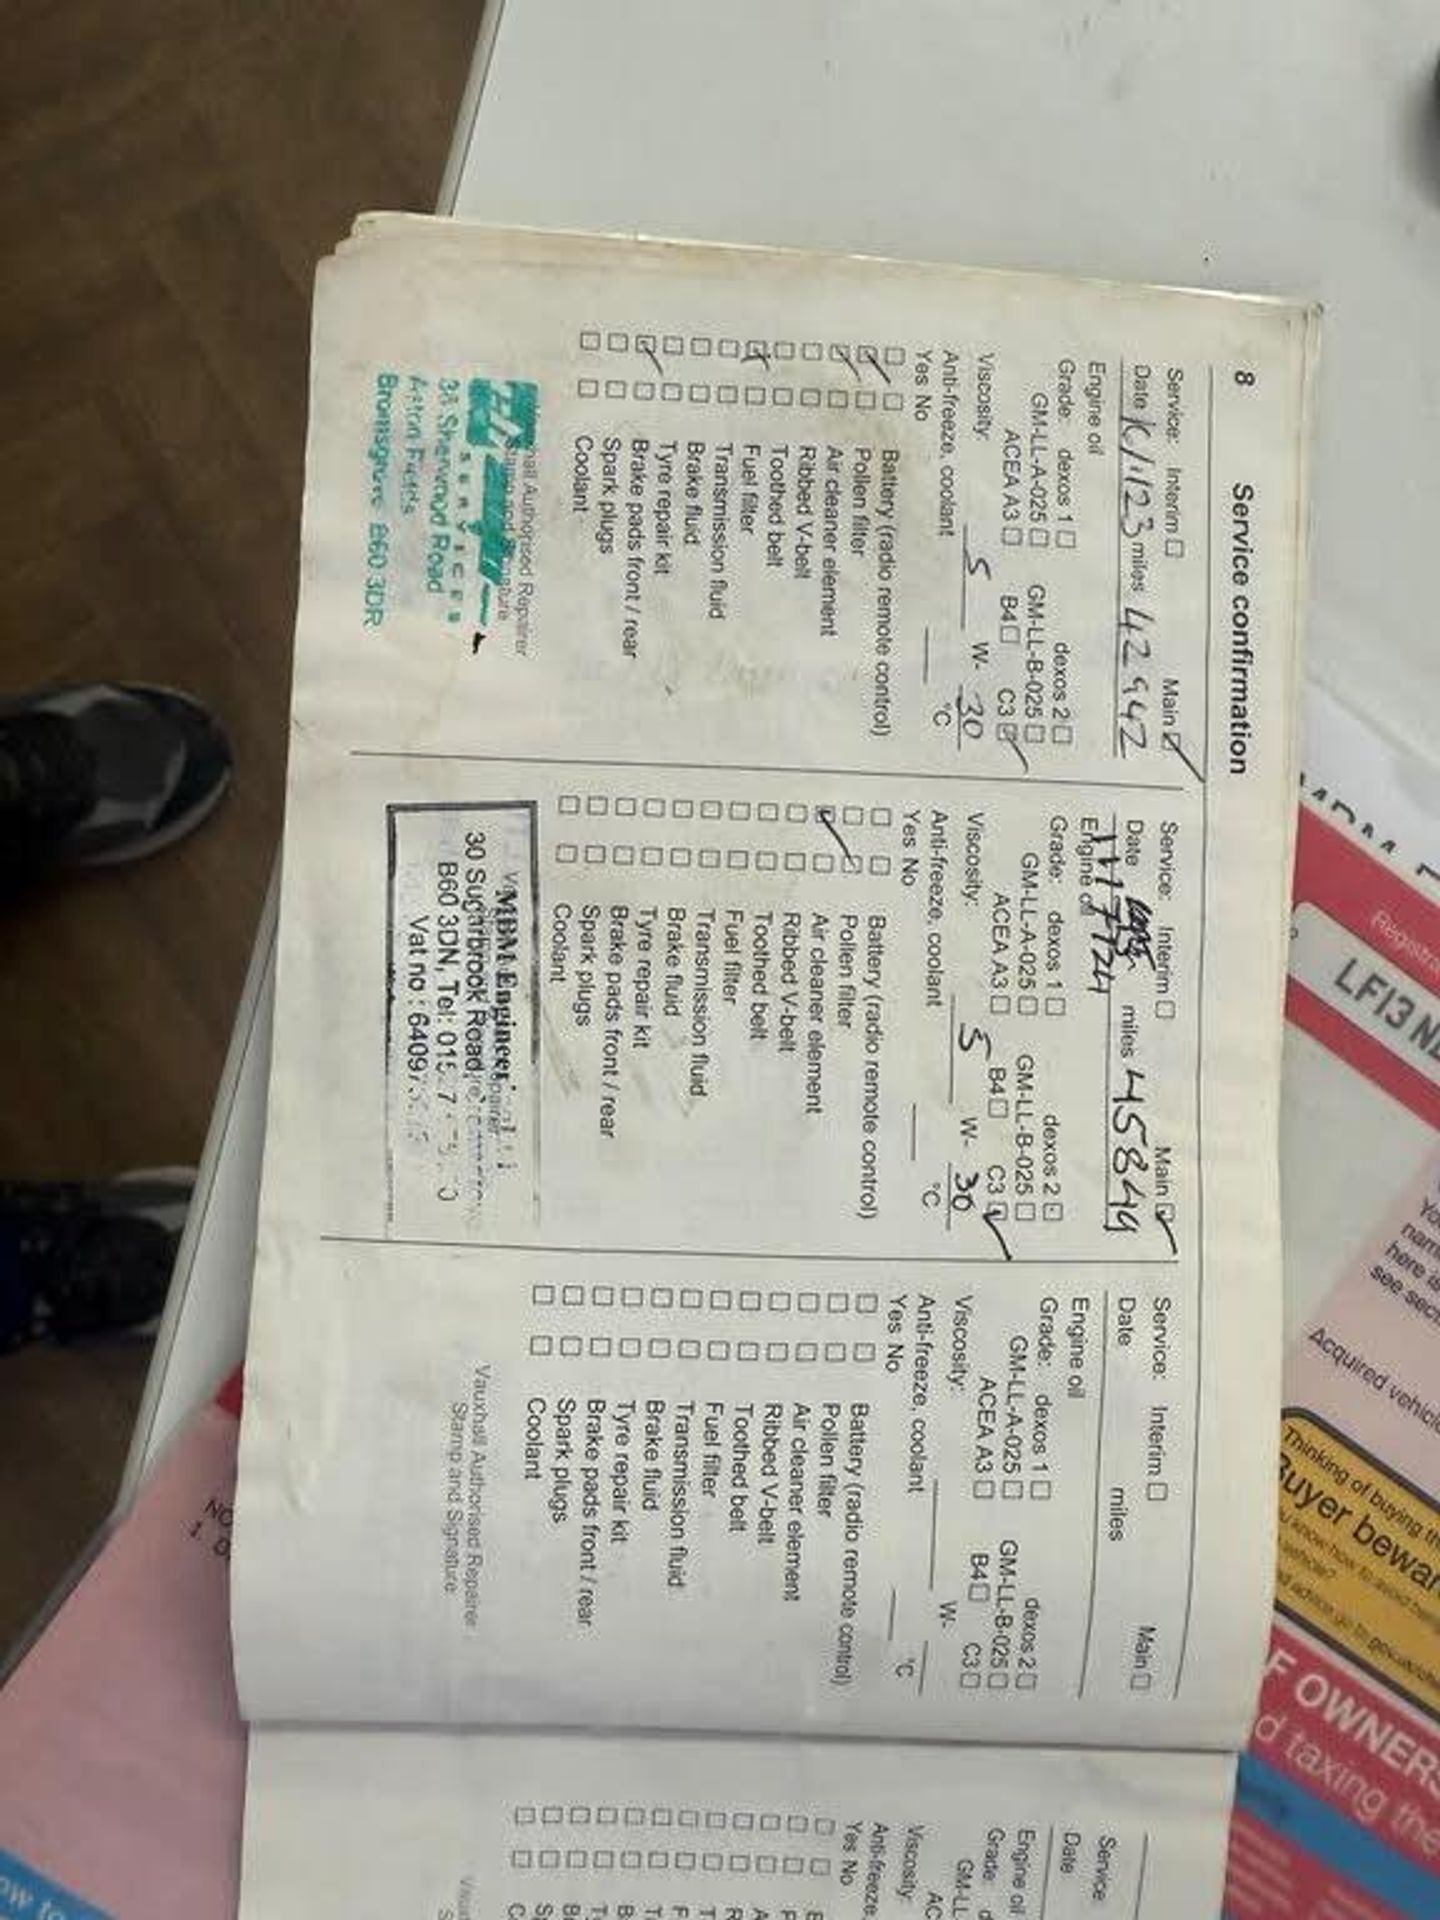 8 Service confirmation
Service: Interim Main
Date miles 42942
Engine oil
Grade: dexos 1 dexos 2
GM-LL-A-025 GM-LL-B-025
ACEA A3 B4 C3
Viscosity: 5 W- 30
Anti-freeze, coolant °C
Yes No
Battery (radio remote control)
Pollen filter
Air cleaner element
Ribbed V-belt
Toothed belt
Fuel filter
Transmission fluid
Brake fluid
Tyre repair kit
Brake pads front / rear
Spark plugs
Coolant
Authorised Repairer
SERVICES
38 Sherwood Road
Aston Fields
Bromsgrove B60 3DR
Service: Interim Main
Date miles 45844
11/7/24
Engine oil
Grade: dexos 1 dexos 2
GM-LL-A-025 GM-LL-B-025
ACEA A3 B4 C3
Viscosity: 5 W- 30
Anti-freeze, coolant °C
Yes No
Battery (radio remote control)
Pollen filter
Air cleaner element
Ribbed V-belt
Toothed belt
Fuel filter
Transmission fluid
Brake fluid
Tyre repair kit
Brake pads front / rear
Spark plugs
Coolant
MBM
30 Sugarbrook Road
B60 3DN, Tel:
Vat no :
Service: Interim Main
Date miles
Engine oil
Grade: dexos 1 dexos 2
GM-LL-A-025 GM-LL-B-025
ACEA A3 B4 C3
Viscosity: W-
Anti-freeze, coolant °C
Yes No
Battery (radio remote control)
Pollen filter
Air cleaner element
Ribbed V-belt
Toothed belt
Fuel filter
Transmission fluid
Brake fluid
Tyre repair kit
Brake pads front / rear
Spark plugs
Coolant
Vauxhall Authorised Repairer
Stamp and Signature
Service:
Date
Engine oil
Grade:
GM-LL
Viscosity:
Anti-freeze,
Yes No
LF13
here is
see sec
Acquired vehicle
Thinking of buying
OWNERS
taxing the